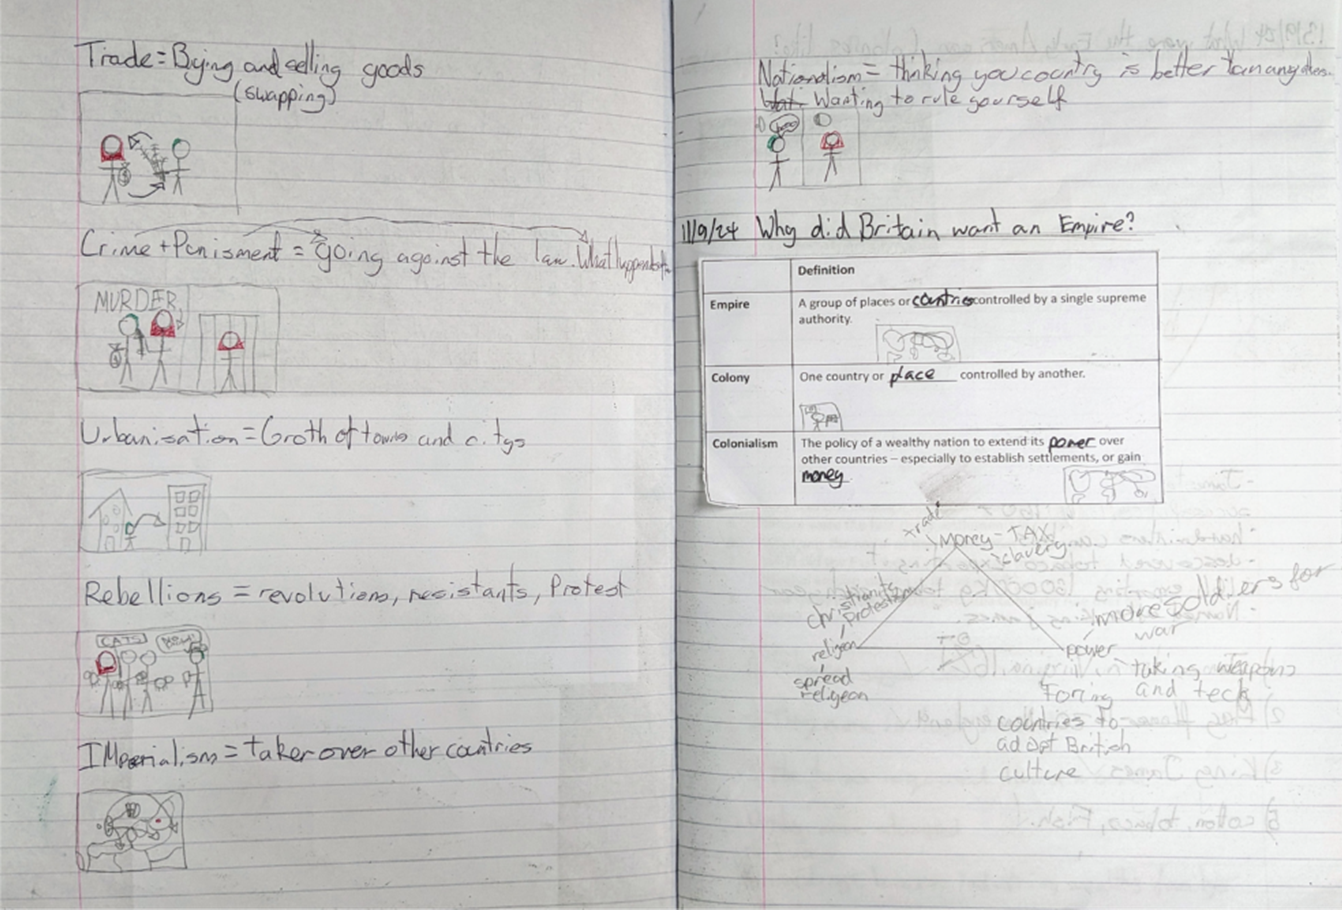 Trade = Bying and selling goods
(swapping)
Crime + Punisment = going against the law. What happends
MURDER
Urbanisation = Groth of towns and citys
Rebellions = revolutions, resistants, Protest
CATS!
IMperialism = taker over other countries
Nationalism = thinking you country is better than any others.
Wanting to rule yourself
11/9/24 Why did Britain want an Empire?
Definition
Empire
A group of places or countries controlled by a single supreme
authority.
Colony
One country or place controlled by another.
Colonialism
The policy of a wealthy nation to extend its power over
other countries – especially to establish settlements, or gain
money
trade
Money - TAX
slavery
christianity
protestant
religion
spread
religeon
more soldiers for
war
power
taking weapons
and teck
Foring
countries to
adopt British
culture